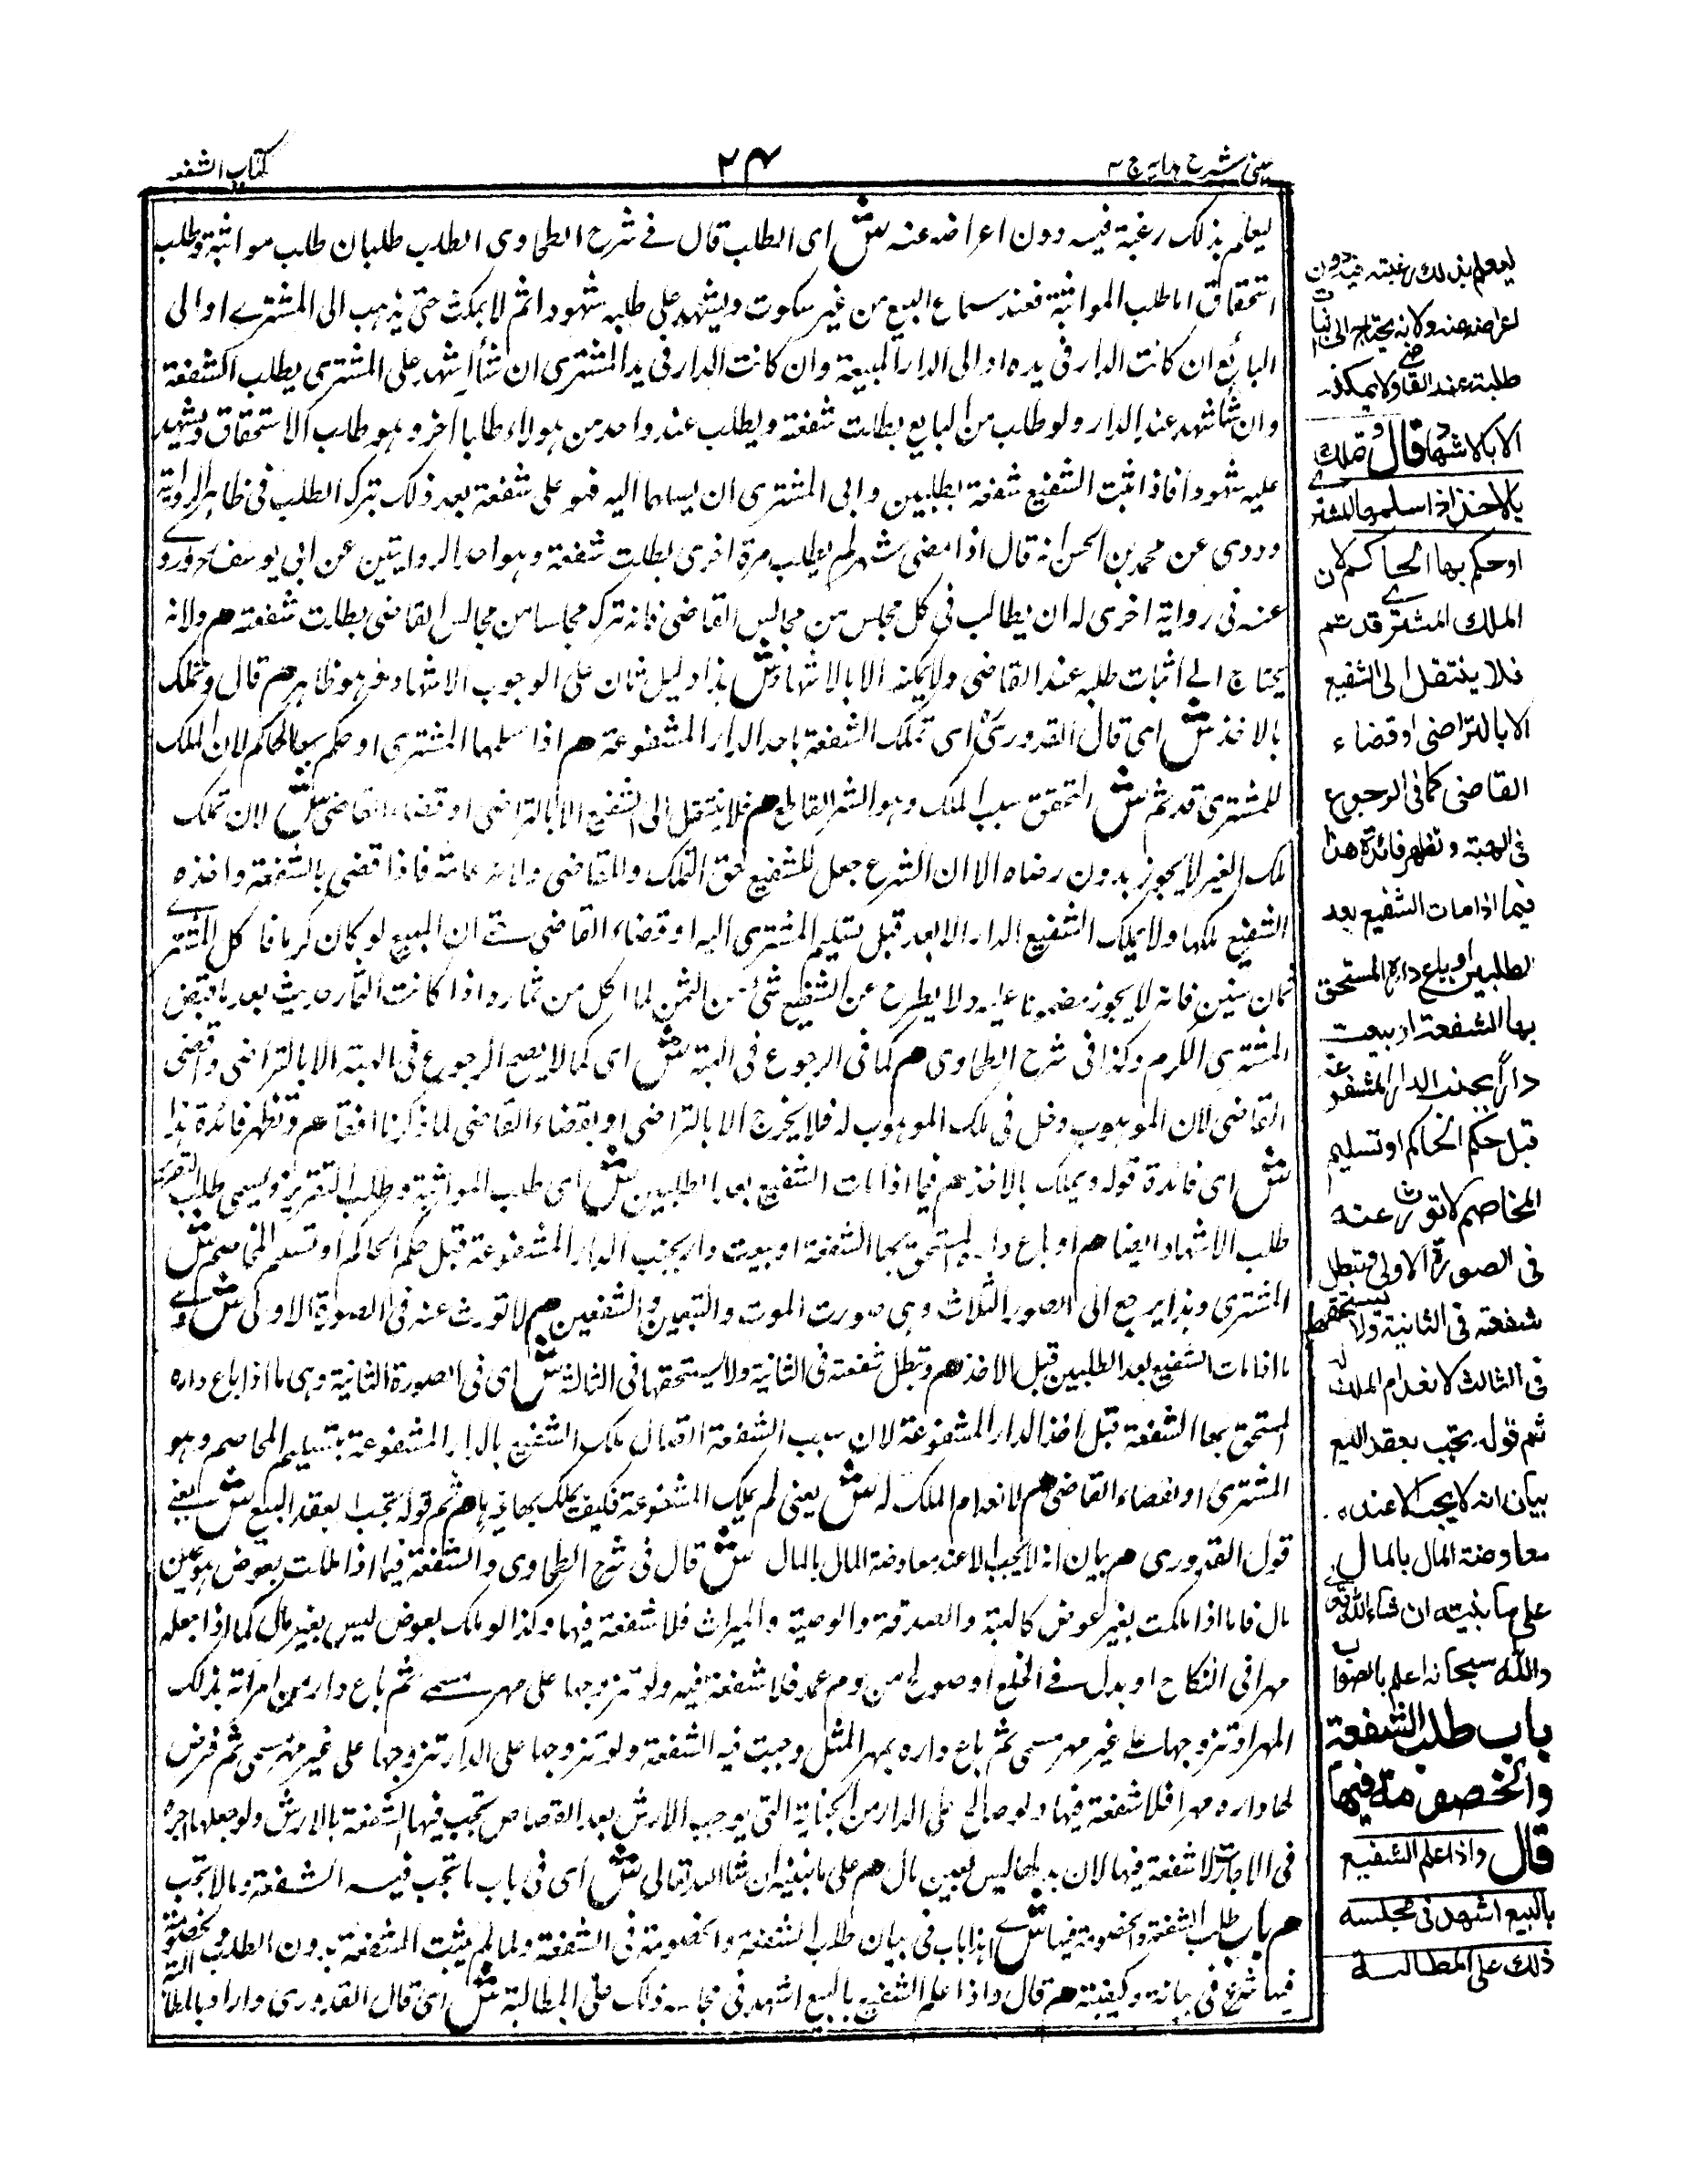 عينى شرح هدايه ج ٣
٢٤
كتاب الشفعه
ليعلم بذلك رغبة فيه دون اعراضه عنه ش اى الطلب قال فے شرح الطحاوى الطلب طلبان طلب مواثبة وطلب
استحقاق اما طلب المواثبة فعند سماع البيع من غير سكوت ويشهد على طلبه شهودا ثم لا يمكث حتى يذهب الى المشترے او الى
البائع ان كانت الدار فى يده او الى الدار المبيعة وان كانت الدار فى يد المشترى ان شاء اشهد على المشترى يطلب الشفعة
وان شاشهد عند الدار ولو طلب من البايع بطلت شفعة ويطلب عند واحد من هولاء طلبا اخر وهو طلب الاستحقاق ويشهد
عليه شهودا فاذا اثبت الشفيع شفعة بطلبين وابى المشترى ان يسلمها اليه فهو على شفعة بعد ذلك بترك الطلب فى ظاهر الرواية
وروى عن محمد بن الحسن انه قال اذا مضى شهر لم يطلب مرة اخرى بطلت شفعة وهو احد الروايتين عن ابى يوسف وروے
عنه فى رواية اخرى له ان يطالب فى كل مجلس من مجالس القاضى فانه ترك مجلسا من مجالس القاضى بطلت شفعته هم ولانه
يحتاج الے اثبات طلبه عند القاضى ولا يمكنه الا بالاشهاد ش هذا دليل ثان على الوجوب الاشهاد وهو ظاهر هم قال وتملك
بالاخذ ش اى قال القدورى اى تملك الشفعة باحد الدار المشفوعة هم اذا سلمها المشترى او حكم بها الحاكم لان الملك
للمشترى قد تم ش لتحقق سبب الملك وهو الشر القاطع هم فلا ينتقل الى الشفيع الا بالتراضى او قضاء القاضى ش لان تملك
ملك الغير لا يجوز بدون رضاه الا ان الشرع جعل للشفيع حق التملك وللقاضى ولاية عامة فاذا قضى بالشفعة واخذه
الشفيع ملكها ولا يملك الشفيع الدار الا بعد قبل تسليم المشترى اليه او قضاء القاضى حتے ان المبيع لو كان كرما فاكل المشترے
ثمان سنين فانه لا يجوز مضمونا عليه ولا يطرح عن الشفيع شئ من الثمن لما اكل من ثماره اذا كانت الثمار حديث بعد ما قبض
المشترى الكرم وكذا فى شرح الطحاوى هم كما فى الرجوع فى الهبة ش اى كما لا يصح الرجوع فى الهبة الا بالتراضى وقضى
القاضى لان الموهوب دخل فى ملك الموهوب له فلا يخرج الا بالتراضى او بقضاء القاضى لما ذكرنا انفا هم وتظهر فائدة هذا
ش اى فائدة قوله ويملك بالاخذ هم فيما اذا مات الشفيع بعد الطلبين ش اى طلب المواثبة وطلب التقرير ويسمى طلب التقرير
طلب الاشهاد ايضا هم او باع داره المستحق بها الشفعة او بيعت دار بجنب الدار المشفوعة قبل حكم الحاكم او تسليم المخاصم ش
المشترى وهذا يرجع الى الصور الثلاث وهى صورت الموت والتبعين والشفعين هم لا تورث عنه فى الصورة الاولى ش وے
ما اذا مات الشفيع بعد الطلبين قبل الاخذ هم وتبطل شفعة فى الثانية ولا يستحقها فى الثالثة ش اى فى الصورة الثانية وهى ما اذا باع داره
المستحق بها الشفعة قبل اخذ الدار المشفوعة لان سبب الشفعة اتصال ملك الشفيع بالدار المشفوعة بتسليم المخاصم وهو
المشترى او بقضاء القاضى هم لانعدام الملك له ش يعنى لم يملك المشفوعة فكيف يملك بها غيرها هم ثم قوله تجب بعقد البيع ش يعنے
قول القدورى هم بيان انه لا يجب الا عند معاوضة المال بالمال ش قال فى شرح الطحاوى والشفعة فيما اذا ملكت بعوض هو عين
مال فاما اذا ملكت بغير عوض كالهبة والصدقة والوصية والميراث فلا شفعة فيها وكذا لو ملك بعوض ليس بغير مال كما اذا جعله
مهرا فى النكاح او بدل فے الخلع او صولح من دم عمد فلا شفعة فيه ولو تزوجها على مهر مسمے ثم باع داره من امراته بذلك
المهر او تزوجها علے غير مهر مسمى ثم باع داره بمهر المثل وجبت فيه الشفعة ولو تزوجها على الدار تزوجها على غير مهر مسمى ثم فرض
لها داره مهرا فلا شفعة فيها ولو صالح على الدار من الجناية التى يوجب الارش بعد القصاص تجب فيها الشفعة بالارش ولو جعلها اجرة
فى الاجارت لا شفعة فيها لان بدلها ليس بعين مال هم على ما نبينه ان شاء الله تعالى ش اى فى باب ما تجب فيه الشفعة وما لا تجب
هم باب طلب الشفعة والخصومة فيها ش اى هذا باب فى بيان طلب الشفعة والخصومة فى الشفعة ولما لم يثبت الشفعة بدون الطلب والخصومة
فيها شرع فى بيانه وكيفيته هم قال واذا علم الشفيع بالبيع اشهد فى مجلسه ذلك على المطالبة ش اى قال القدورى واراد بالمطالبة
ليعلم بذلك رغبته فيه دون
اعراضه عنه ولانه يحتاج الى اثبات
طلبه عند القاضے ولا يمكنه
الا بالاشهاد قال وتملك
بالاخذ اذا سلمها المشترے
او حكم بها الحاكم لان
الملك للمشترے قد تم
فلا ينتقل الى الشفيع
الا بالتراضى او قضاء
القاضى كما فى الرجوع
فى الهبة وتظهر فائدة هذا
فيما اذا مات الشفيع بعد
الطلبين او باع داره المستحق
بها الشفعة او بيعت
دار بجنب الدار المشفوعة
قبل حكم الحاكم او تسليم
المخاصم لا تورث عنه
فى الصورة الاولى وتبطل
شفعته فى الثانية ولا يستحقها
فى الثالث لانعدام الملك له
ثم قوله تجب بعقد البيع
بيان انه لا يجب الا عند
معاوضة المال بالمال
على ما نبينه ان شاء الله تعالے
والله سبحانه اعلم بالصواب
باب طلب الشفعة
والخصومة فيها
قال واذا علم الشفيع
بالبيع اشهد فى مجلسه
ذلك على المطالبة